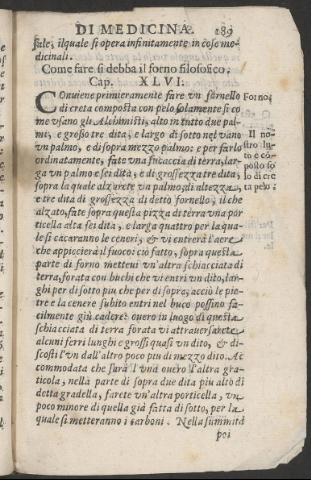 DI MEDICINA. 289
sale, il quale si opera infinitamente in cose me-
dicinali.
Come fare si debba il forno filosofico.
Cap. XLVI.
COnuiene primieramente fare vn fornello
di creta composta con pelo solamente si co
me vsano gli Alchimisti, alto in tutto due pal-
mi, e grosso tre dita, e largo di sotto nel vano
vn palmo, e di sopra mezzo palmo: e per farlo
ordinatamente, fate vna stiacciata di terra, lar-
ga vn palmo e sei dita, e di grossezza tre dita,
sopra la quale alzarete vn palmo, di altezza,
e tre dita di grossezza di detto fornello, il che
alzato, fate sopra questa pizza di terra vna por
ticella alta sei dita, e larga quattro per la qua-
le si cacaranno le ceneri, & vi entrerà l'aere
che appiccierà il fuoco: ciò fatto, sopra questa
parte di forno metteui vn'altra schiacciata di
terra, forata con buchi che vi entri vn dito, lar-
ghi per di sotto piu che per di sopra, acciò le pie-
tre e la cenere subito entri nel buco possino fa-
cilmente giù cadere: ouero in luogo di questa
schiacciata di terra forata vi attrauersarete
alcuni ferri lunghi e grossi quasi vn dito, & di-
scosti l'vn dall'altro poco piu di mezzo dito. Ac
commodata che sarà l'vna ouero l'altra gra-
ticola, nella parte di sopra due dita piu alto di
detta gradella, farete vn'altra porticella, vn
poco minore di quella già fatta di sotto, per la
quale si metteranno i carboni. Nella summità
poi
Forno,
Il no-
stro lu-
to e cō-
posto so
lo di cre
ta pelo